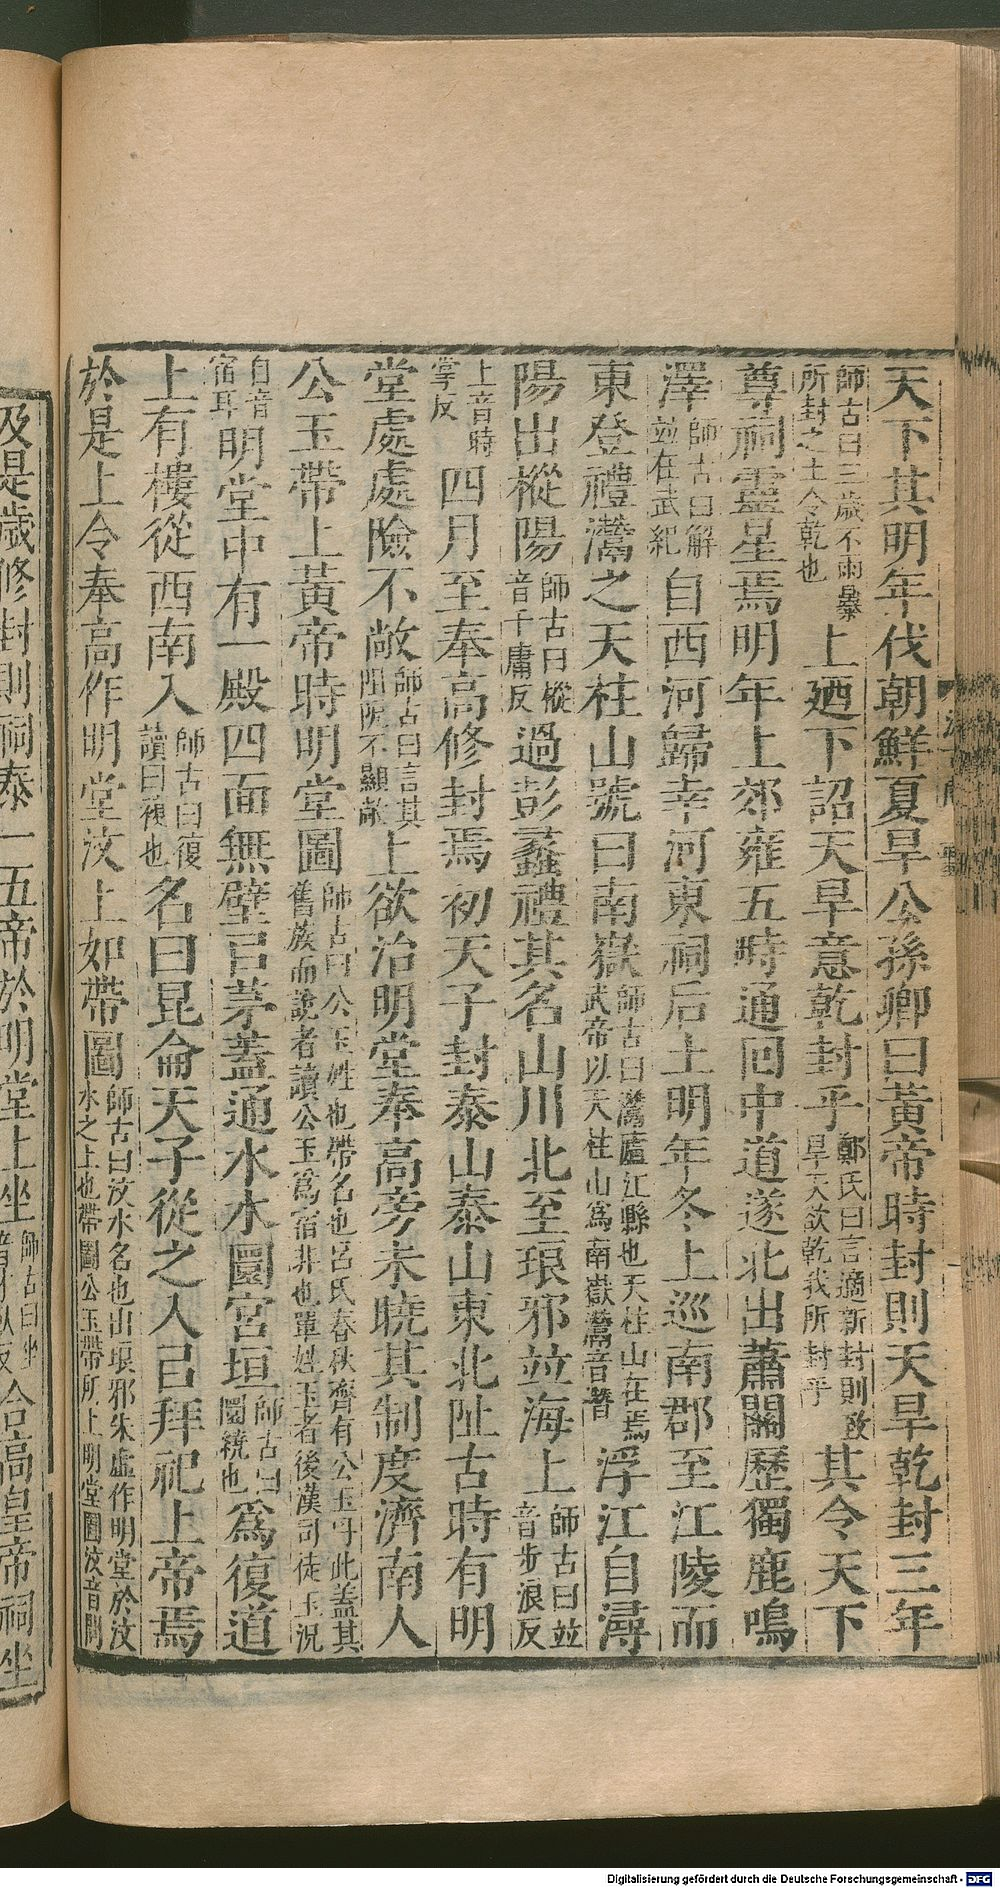 天下其明年伐朝鮮夏旱公孫卿曰黃帝時封則天旱乾封三年
師古曰三歲不雨暴所封之土令乾也上廼下詔天旱意乾封乎鄭氏曰言適新封則致旱天欲乾我所封乎其令天下
尊祠靈星焉明年上郊雍五畤通回中道遂北出蕭關歷獨鹿鳴
澤師古曰解並在武紀自西河歸幸河東祠后土明年冬上巡南郡至江陵而
東登禮灊之天柱山號曰南嶽師古曰灊廬江縣也天柱山在焉武帝以天柱山爲南嶽灊音潛浮江自潯
陽出樅陽師古曰樅音千庸反過彭蠡禮其名山川北至琅邪竝海上師古曰竝音步浪反
上音時掌反四月至奉高修封焉初天子封泰山泰山東北阯古時有明
堂處處險不敞師古曰言其阻阸不顯敞上欲治明堂奉高旁未曉其制度濟南人
公玉帶上黃帝時明堂圖師古曰公玉姓也帶名也呂氏春秋齊有公玉丹此蓋其舊族而說者讀公玉爲宿非也單姓玉者後漢司徒玉況
自音宿耳明堂中有一殿四面無壁㠯茅蓋通水水圜宮垣師古曰圜繞也爲復道
上有樓從西南入師古曰復讀曰複也名曰昆侖天子從之入㠯拜祀上帝焉
於是上令奉高作明堂汶上如帶圖師古曰汶水名也出琅邪朱虛作明堂於汶水之上也帶圖公玉帶所上明堂圖汶音問
及是歲修封則祠泰一五帝於明堂上坐師古曰坐音才臥反合高皇帝祠坐
Digitalisierung gefördert durch die Deutsche Forschungsgemeinschaft - DFG